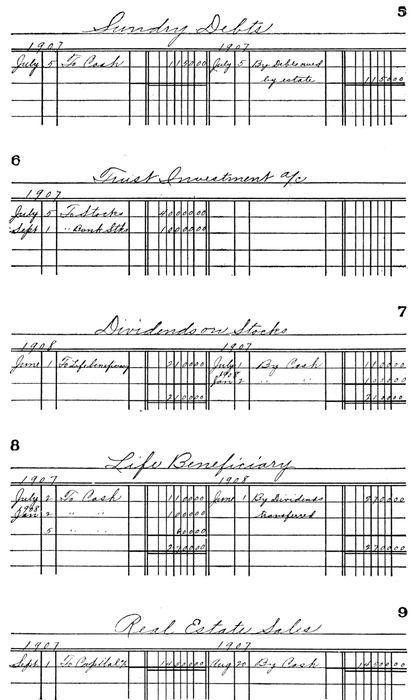 5
Sundry Debts
1907 1907
July 5 To Cash 115000 July 5 By Debts owed
by estate 115000
6
Trust Investment a/c
1907
July 5 To Stocks 4000000
Sept 1 " Bank Stks 1000000
7
Dividends on Stocks
1908 1907
June 1 To Life beneficiary 210000 July 1 By Cash 110000
1908
Jan 2 " " 100000
210000 210000
8
Life Beneficiary
1907 1908
July 2 To Cash 110000 June 1 By Dividends 270000
1908
Jan 2 " " 100000 transferred
5 " " 60000
270000 270000
9
Real Estate Sales
1907 1907
Sept 1 To Capital % Aug 20 By Cash